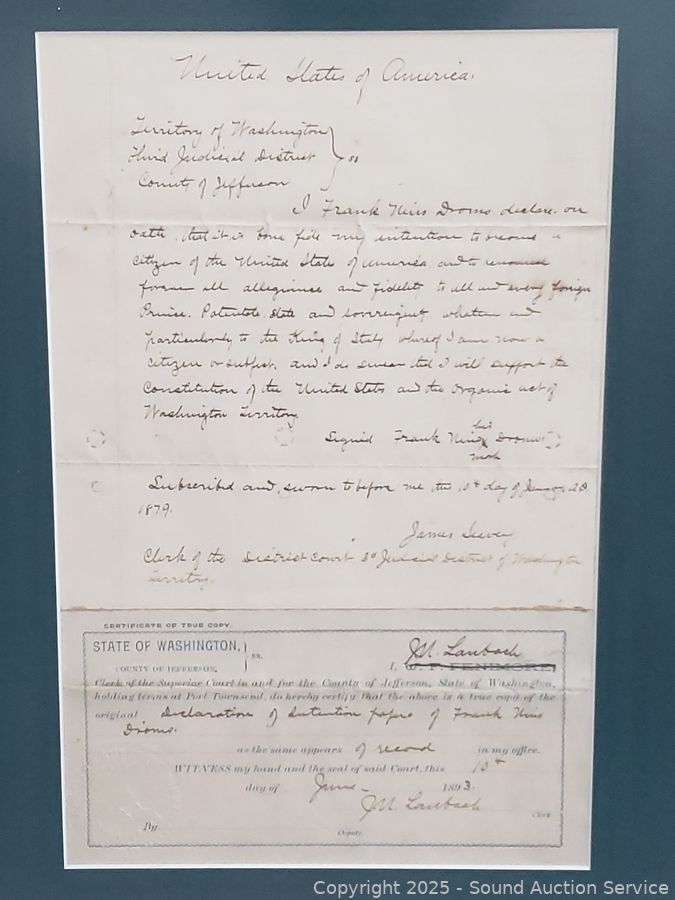 United States of America.
Territory of Washington
Third Judicial District } ss
County of Jefferson
I Frank Droms declare on
oath, that it is bona fide my intention to become a
citizen of the United States of America, and to renounce
forever all allegiance and fidelity to all and every foreign
Prince, Potentate, State and sovereignty whatever and
particularly to the King of Italy whereof I am now a
citizen or subject, and I do swear that I will support the
Constitution of the United States and the Organic act of
Washington Territory
Signed Frank his Droms
mark
Subscribed and sworn to before me this 10th day of January AD
1879.
James Seavey
Clerk of the District Court 3d Judicial District of Washington
Territory.
CERTIFICATE OF TRUE COPY.
STATE OF WASHINGTON, } ss.
COUNTY OF JEFFERSON,
I, J.N. Laubach
W. F. FENIMORE,
Clerk of the Superior Court in and for the County of Jefferson, State of Washington,
holding terms at Port Townsend, do hereby certify that the above is a true copy of the
original Declaration of Intention papers of Frank
Droms.
as the same appears of record in my office.
WITNESS my hand and the seal of said Court, this 10th
day of June 1893.
J.N. Laubach
Clerk
By
Deputy
Copyright 2025 - Sound Auction Service